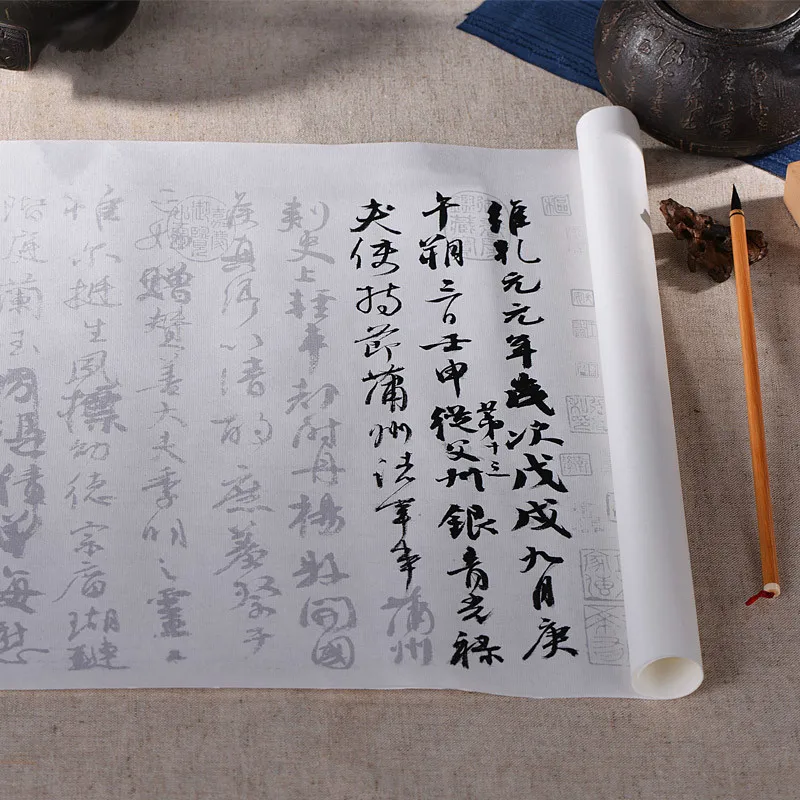 維乾元元年歲次戊戌九月庚
午朔三日壬申從父叔銀青光祿
第十三
夫使持節蒲州諸軍事蒲州
刺史上輕車都尉丹楊縣開國
侯真卿以清酌庶羞祭于
亡姪贈贊善大夫季明之靈曰
惟爾挺生夙標幼德宗廟瑚璉
階庭蘭玉每慰